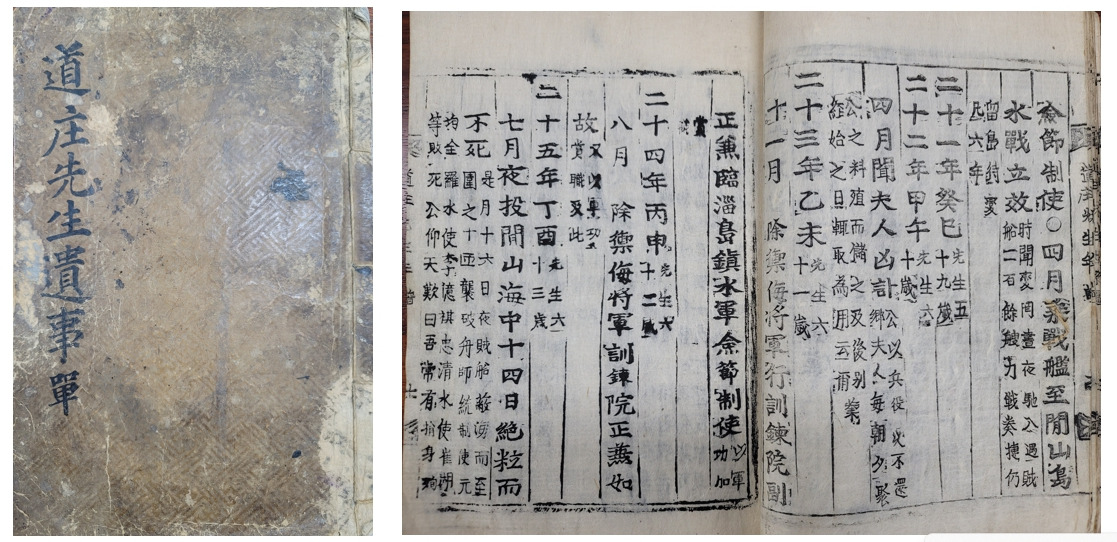 道庄先生遺事單
僉節制使○四月乘戰艦至閒山島
水戰立效
時聞変罔晝夜馳入遇賊
船二石餘艘力戰奏捷仍
留島待変
凡六年
二十一年癸巳 先生五
十九歲
二十二年甲午 先生六
十歲
四月聞夫人凶訃 公以兵役 不還
鄉夫人每朝夕
公之料殖而儲之及後別
經始之日輒取為用云爾
二十三年乙未 先生六
十一歲
十一月 除禦侮將軍行訓鍊院副
正兼臨淄島鎮水軍僉節制使 以軍
功加
賞
二十四年丙申 先生六
十二歲
八月 除禦侮將軍訓鍊院正兼如
故 又以軍功
賞職及此
二十五年丁酉 先生六
十三歲
七月夜投閒山海中十四日絶粒而
不死 是月十六日夜賊船蔽海而至
圍之十匝襲破舟師統制使元
均全羅水使李億祺忠清水使崔湖
等敗死公仰天歎曰吾常有捐身